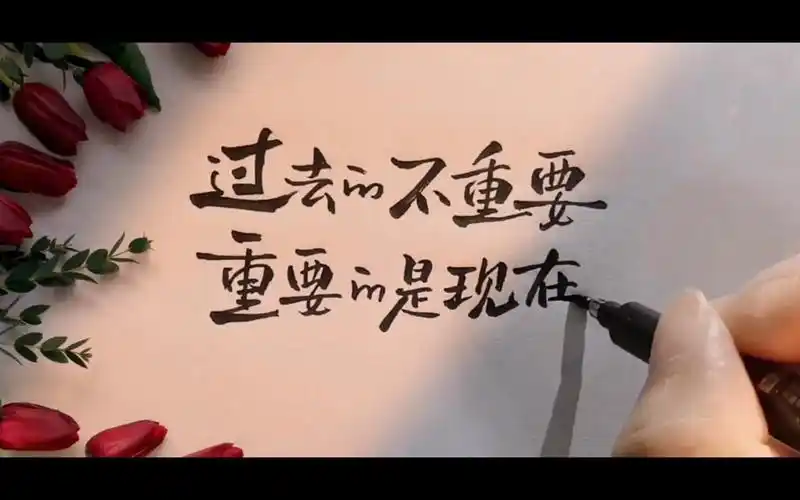 过去的不重要
重要的是现在